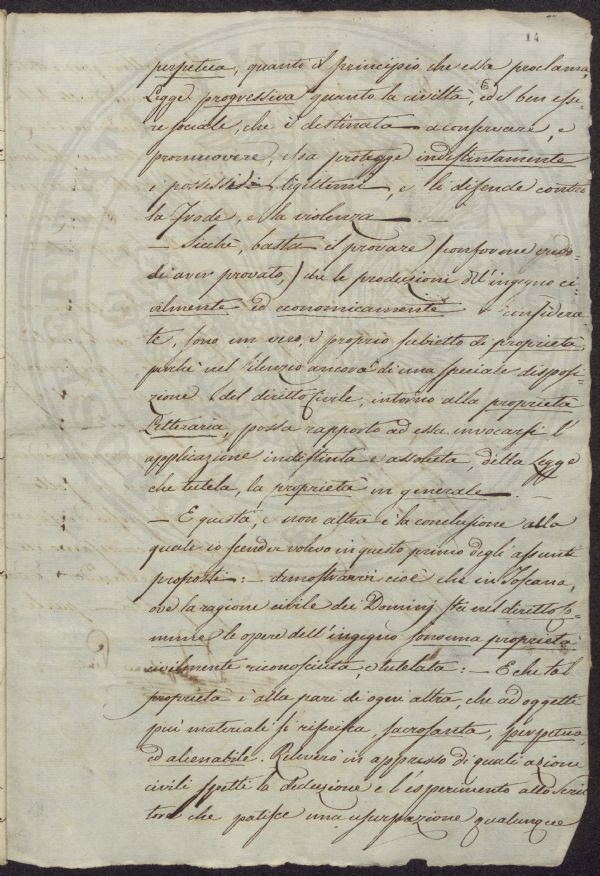 14
perpetua, quanto il principio che essa proclama,
Legge progressiva quanto la civiltà, ed il ben esse-
re sociale, che è destinata a conservare, e
promuovere, essa protegge indistintamente
i possessi legittimi, e li difende contro
la frode, e la violenza. —
— Sicchè, basta il provare (conforme credo-
di aver provato,) che le produzioni dell'ingegno ci-
vilmente ed economicamente considera-
te, sono un vero, e proprio subietto di proprietà
perchè nel silenzio ancora di una speciale disposi-
zione del diritto Civile, intorno alla proprietà
Letteraria, possa rapporto ad essa invocarsi l'
applicazione indistinta e assoluta, della Legge
che tutela, la proprietà in generale. —
— E questa, e non altra è la conclusione alla
quale io scender volevo in questo primo degli assunti
proposti: — dimostrarvi cioè che in Toscana,
ove la ragione civile dei Dominj sta nel diritto Co-
mune, le opere dell'ingegno sono una proprietà
civilmente riconosciuta, e tutelata: — E che tal
proprietà è alla pari di ogni altra, che ad oggetti
più materiali si riferisca, sacrosanta, perpetua,
ed alienabile. Rileverò in appresso di quali azioni
civili spetti la deduzione e l'esperimento allo Scrit-
tore che patisce una usurpazione qualunque